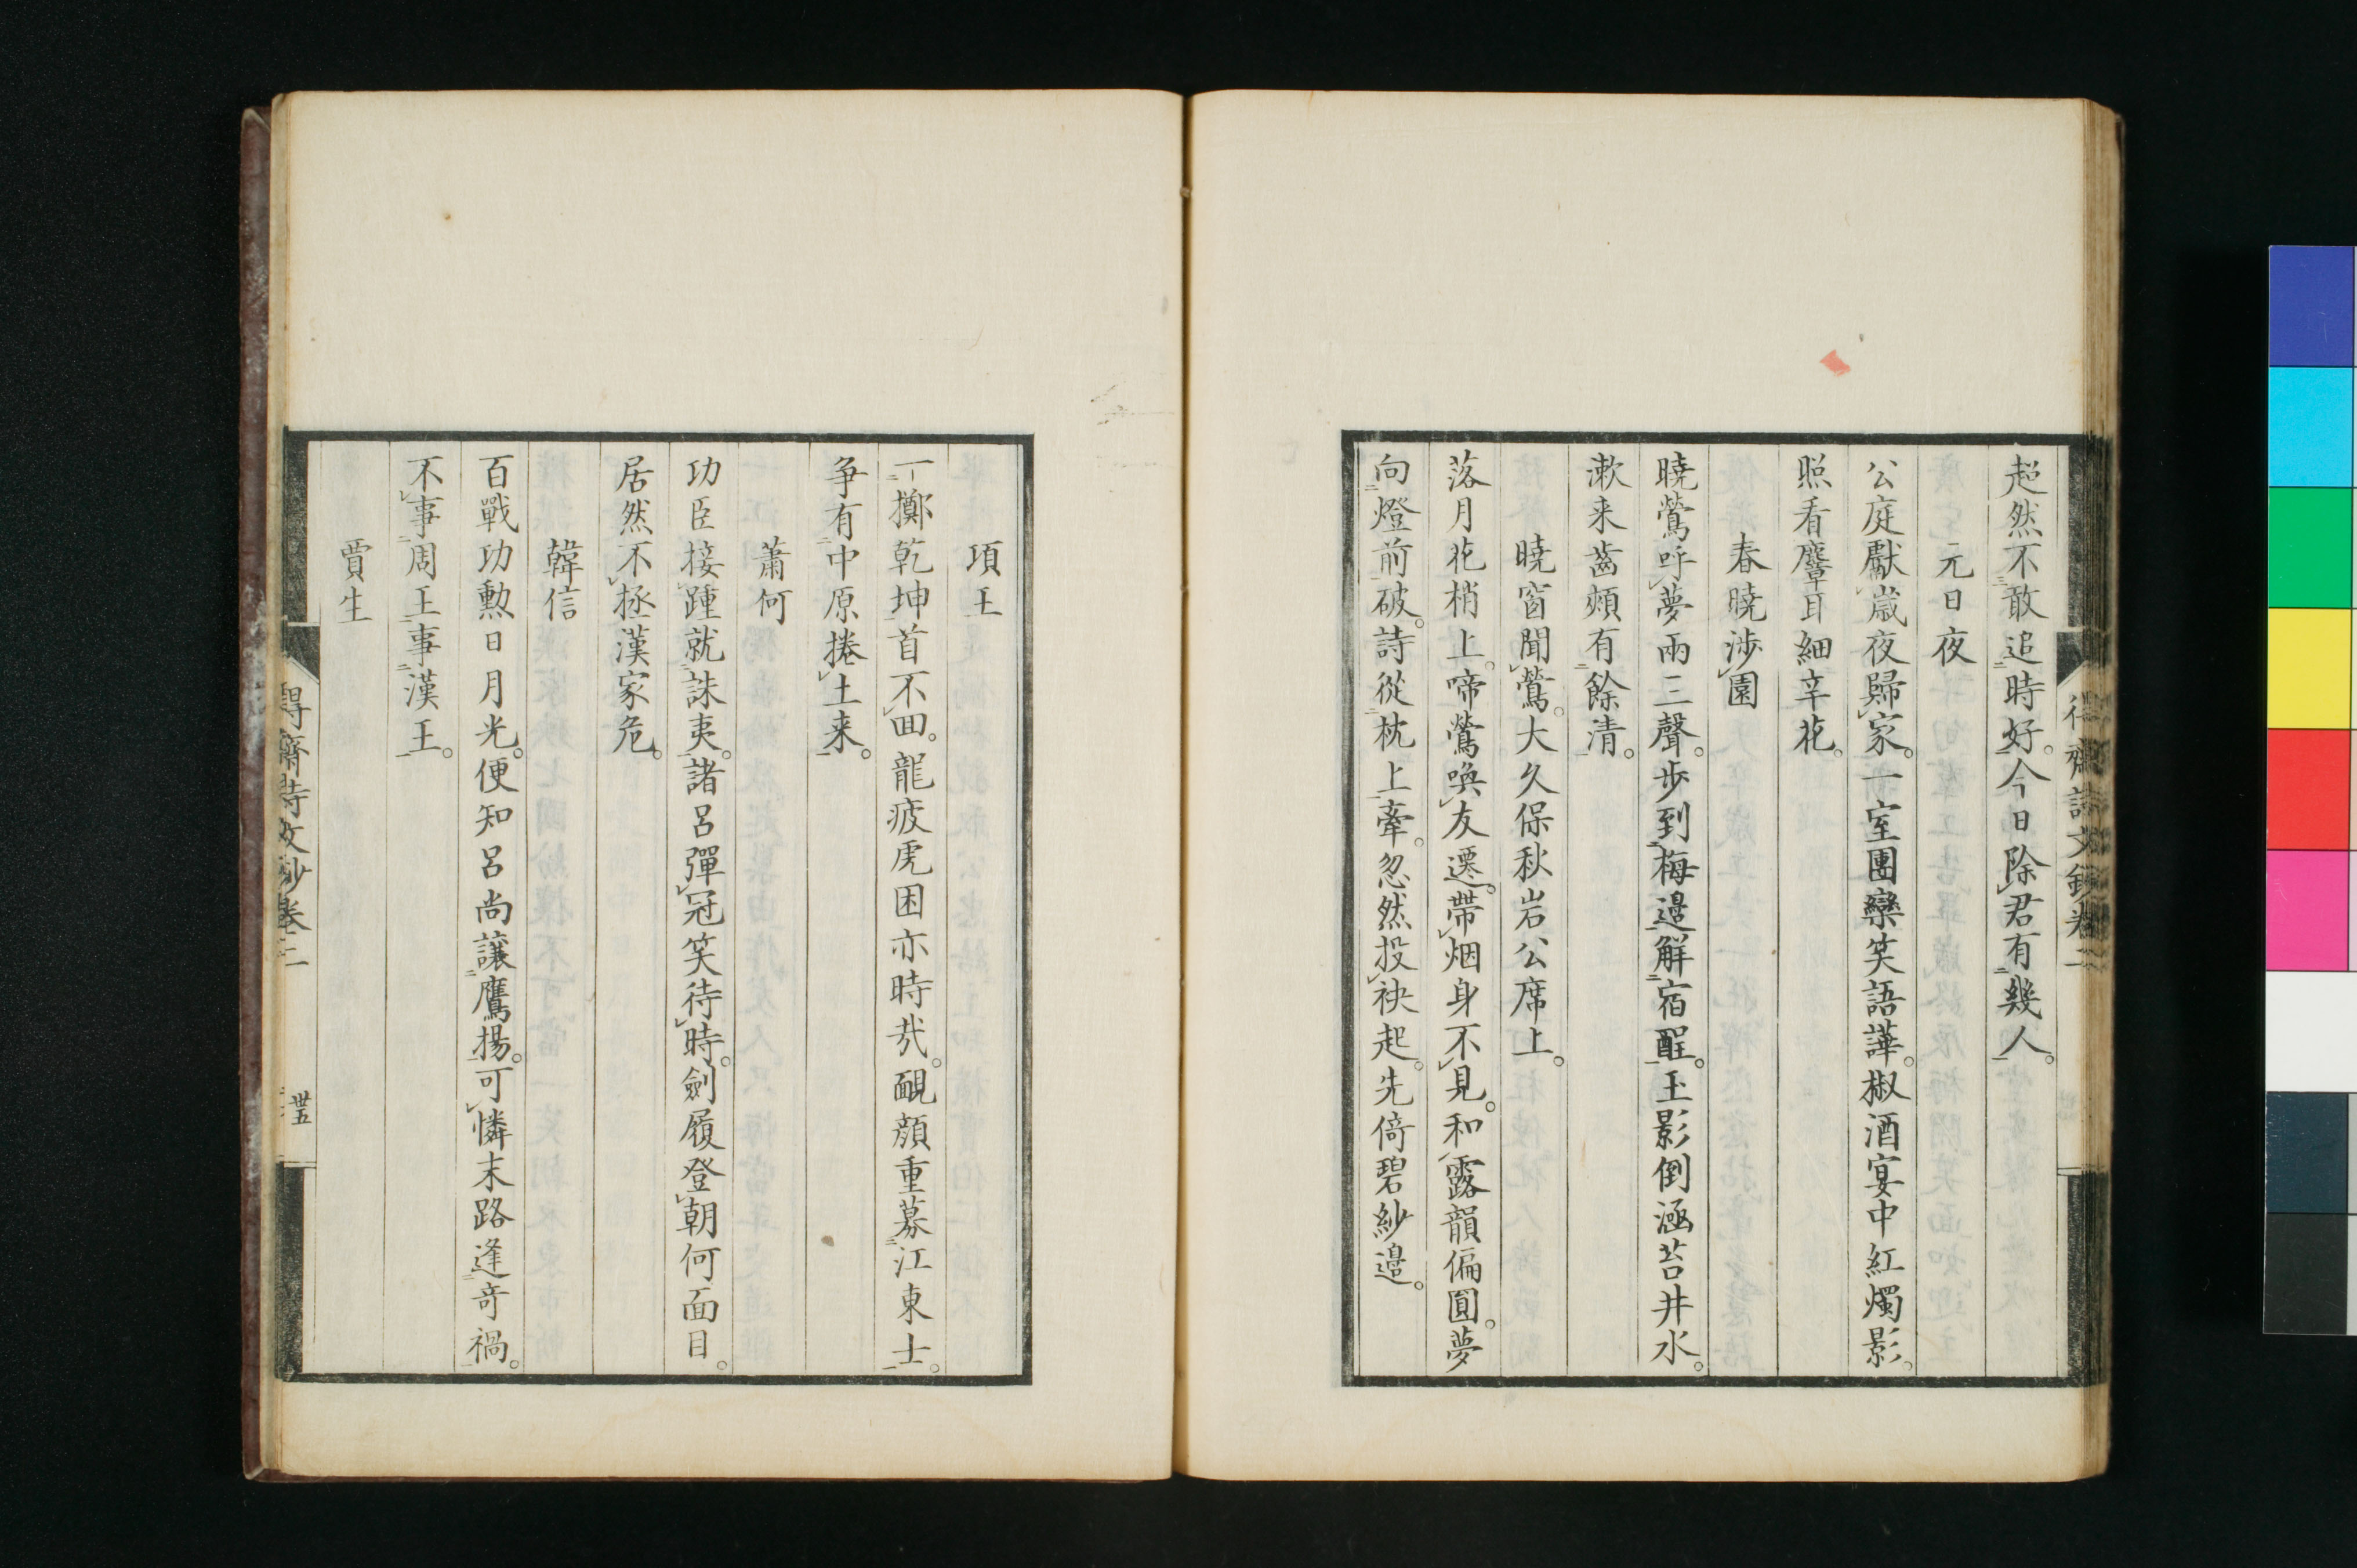 超然不敢追時好。今日除君有幾人。
元日夜
公庭獻歲夜歸家。一室團欒笑語譁。椒酒宴中紅燭影。
照看麞耳細辛花。
春曉涉園
曉鶯呼夢兩三聲。步到梅邊解宿酲。玉影倒涵苔井水。
漱来齒頰有餘清。
曉窗聞鶯。大久保秋岩公席上。
落月花梢上。啼鶯喚友遷。帶烟身不見。和露韻偏圓。夢
向燈前破。詩從枕上牽。忽然投袂起。先倚碧紗邊。
得齋詩文鈔卷二
項王
一擲乾坤首不回。龍疲虎困亦時哉。靦顔重募江東士。
争有中原捲土来。
蕭何
功臣接踵就誅夷。諸呂彈冠笑待時。劍履登朝何面目。
居然不拯漢家危。
韓信
百戰功勲日月光。便知呂尚讓鷹揚。可憐末路逢奇禍。
不事周王事漢王。
賈生
得齋詩文鈔卷二
卅五